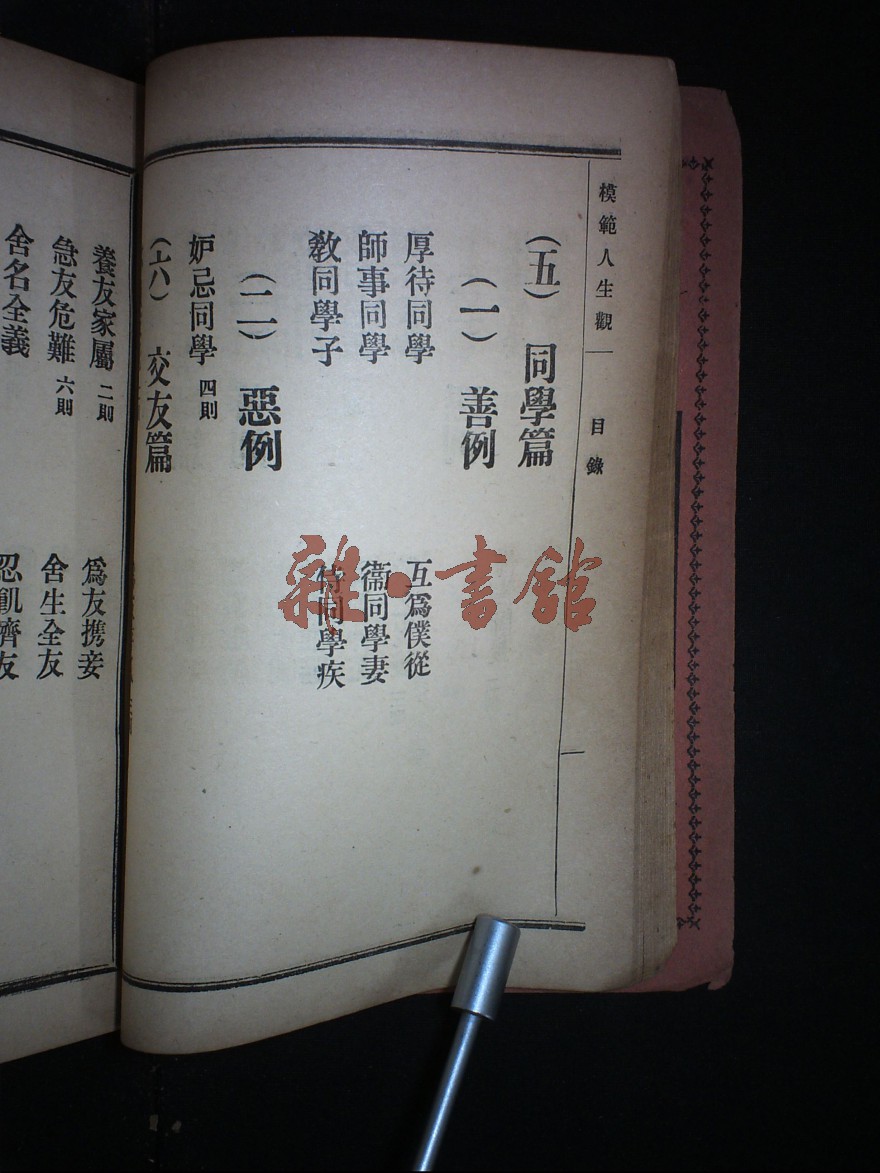 模範人生觀 目錄
（五） 同學篇
（一） 善例
厚待同學 互爲僕從
師事同學 衞同學妻
敎同學子 侍同學疾
（二） 惡例
妒忌同學 四則
（六） 交友篇
養友家屬 二則 爲友携妾
急友危難 六則 舍生全友
舍名全義 忍飢濟友
雜·書館